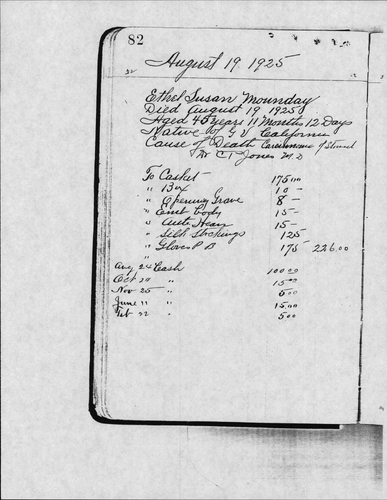 82
August 19 1925
Ethel Susan Mounday
Died August 19 1925
Aged 45 Years 11 Months 12 Days
Native of G V California
Cause of Death Carcinoma of Stomach
Dr C P Jones M.D
To Casket 175.00
" Box 10 -
" Opening Grave 8 -
" Emb body 15 -
" Auto Hears 15 -
" Silk Stockings 125
" Gloves P B 175 226.00
"
Aug 24 Cash 100.00
Oct " 15.00
Nov 25 " 5.00
June 11 " 15.00
Feb 22 " 5.00